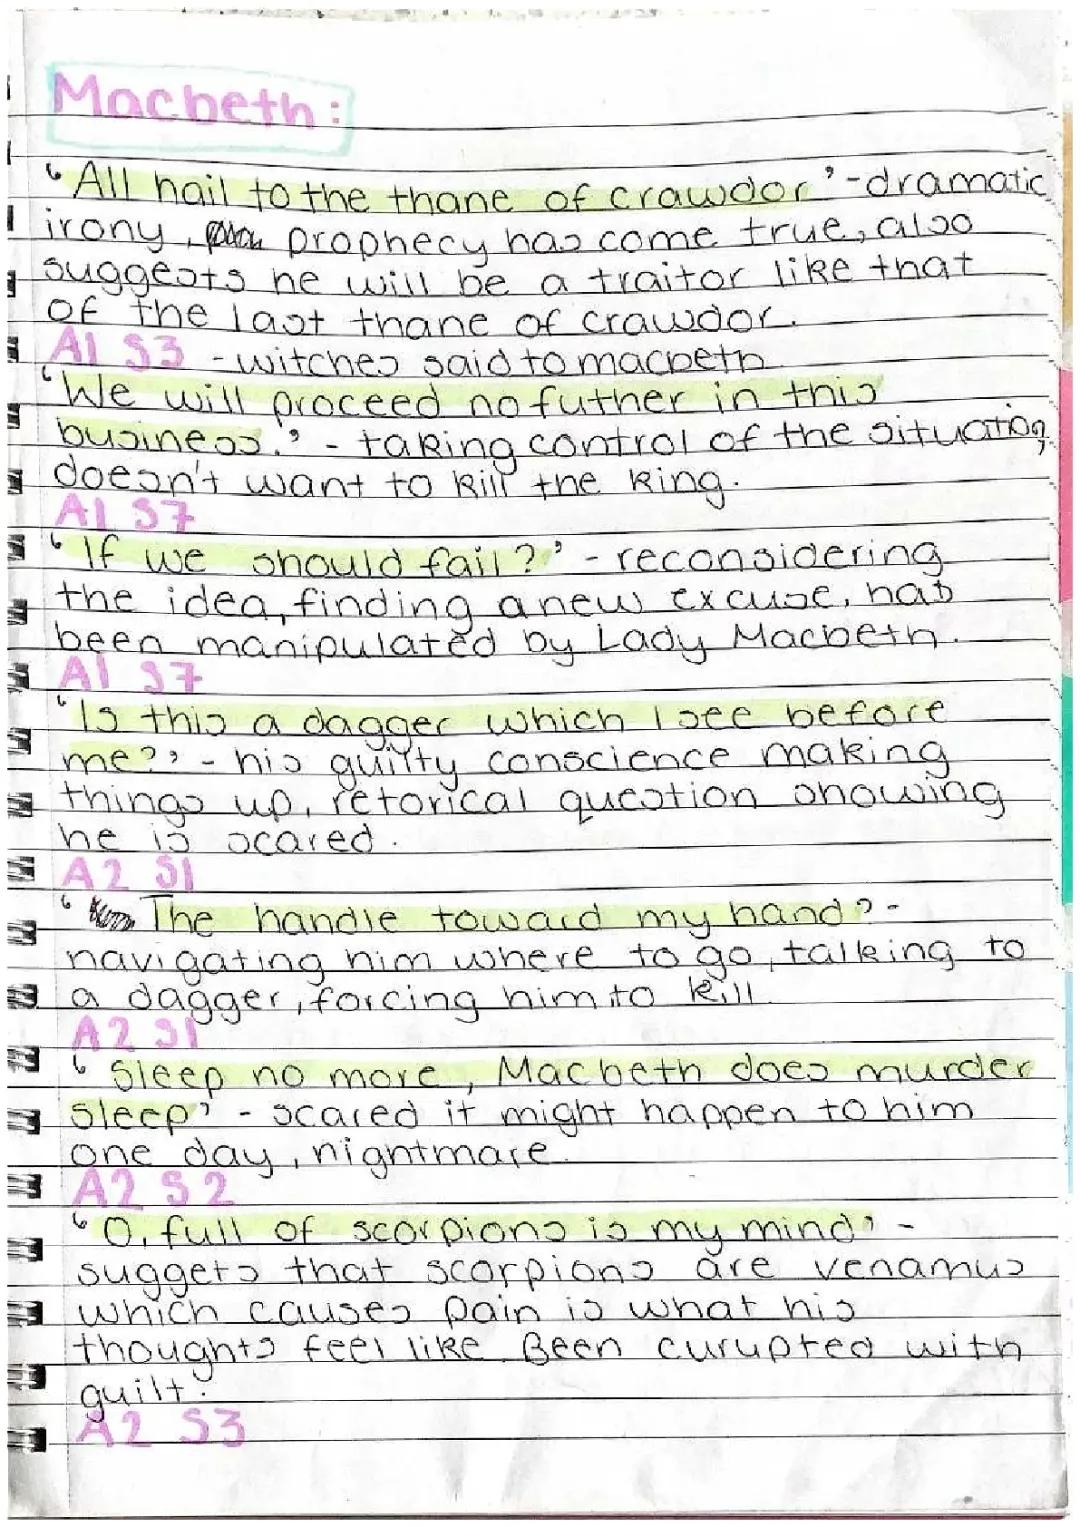 Macbeth:
'All hail to the thane of crawdor' - dramatic
irony, prophecy has come true, also
suggests he will be a traitor like that
of the last thane of crawdor.
A1 S3 - witches said to macbeth
'We will proceed no futher in this
business.' - taking control of the situation,
doesn't want to kill the king.
A1 S7
'If we should fail?' - reconsidering
the idea, finding a new excuse, has
been manipulated by Lady Macbeth.
A1 S7
'Is this a dagger which I see before
me?' - his guilty conscience making
things up, retorical question showing
he is scared.
A2 S1
'The handle toward my hand' -
navigating him where to go, talking to
a dagger, forcing him to kill
A2 S1
'Sleep no more, Macbeth does murder
sleep' - scared it might happen to him
one day, nightmare.
A2 S2
'O, full of scorpions is my mind' -
suggets that scorpions are venamus
which causes pain is what his
thoughts feel like. Been curupted with
guilt.
A2 S3